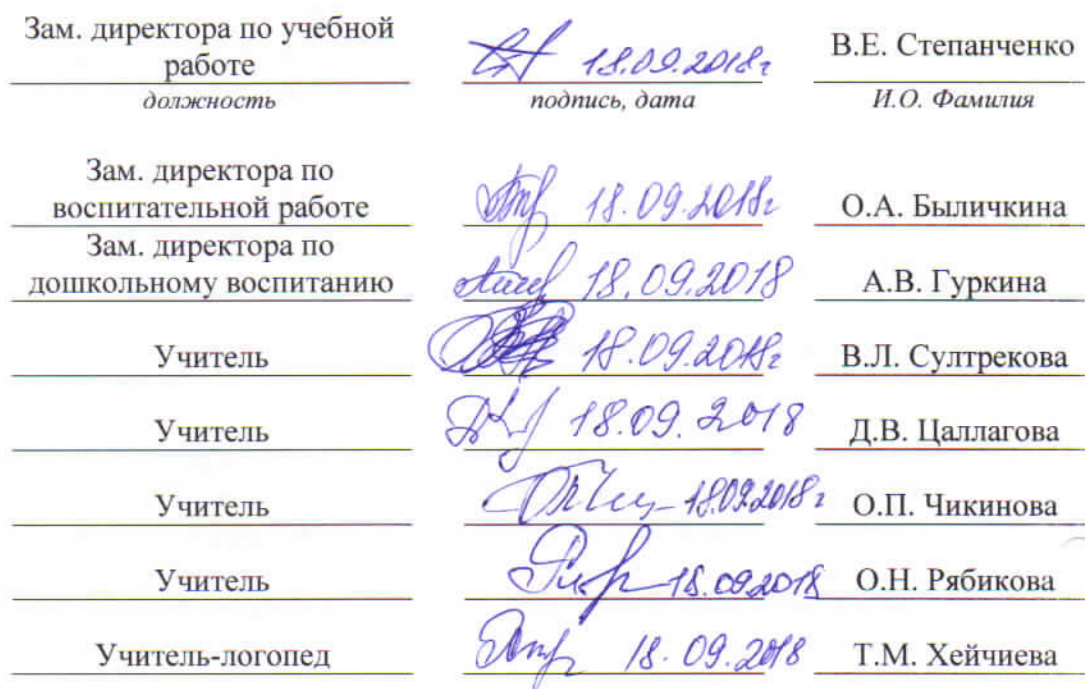 Зам. директора по учебной
работе 18.09.2018г В.Е. Степанченко
должность подпись, дата И.О. Фамилия
Зам. директора по
воспитательной работе 18.09.2018г О.А. Быличкина
Зам. директора по
дошкольному воспитанию 18.09.2018 А.В. Гуркина
Учитель 18.09.2018г В.Л. Султрекова
Учитель 18.09.2018 Д.В. Цаллагова
Учитель 18.09.2018г О.П. Чикинова
Учитель 18.09.2018 О.Н. Рябикова
Учитель-логопед 18.09.2018 Т.М. Хейчиева